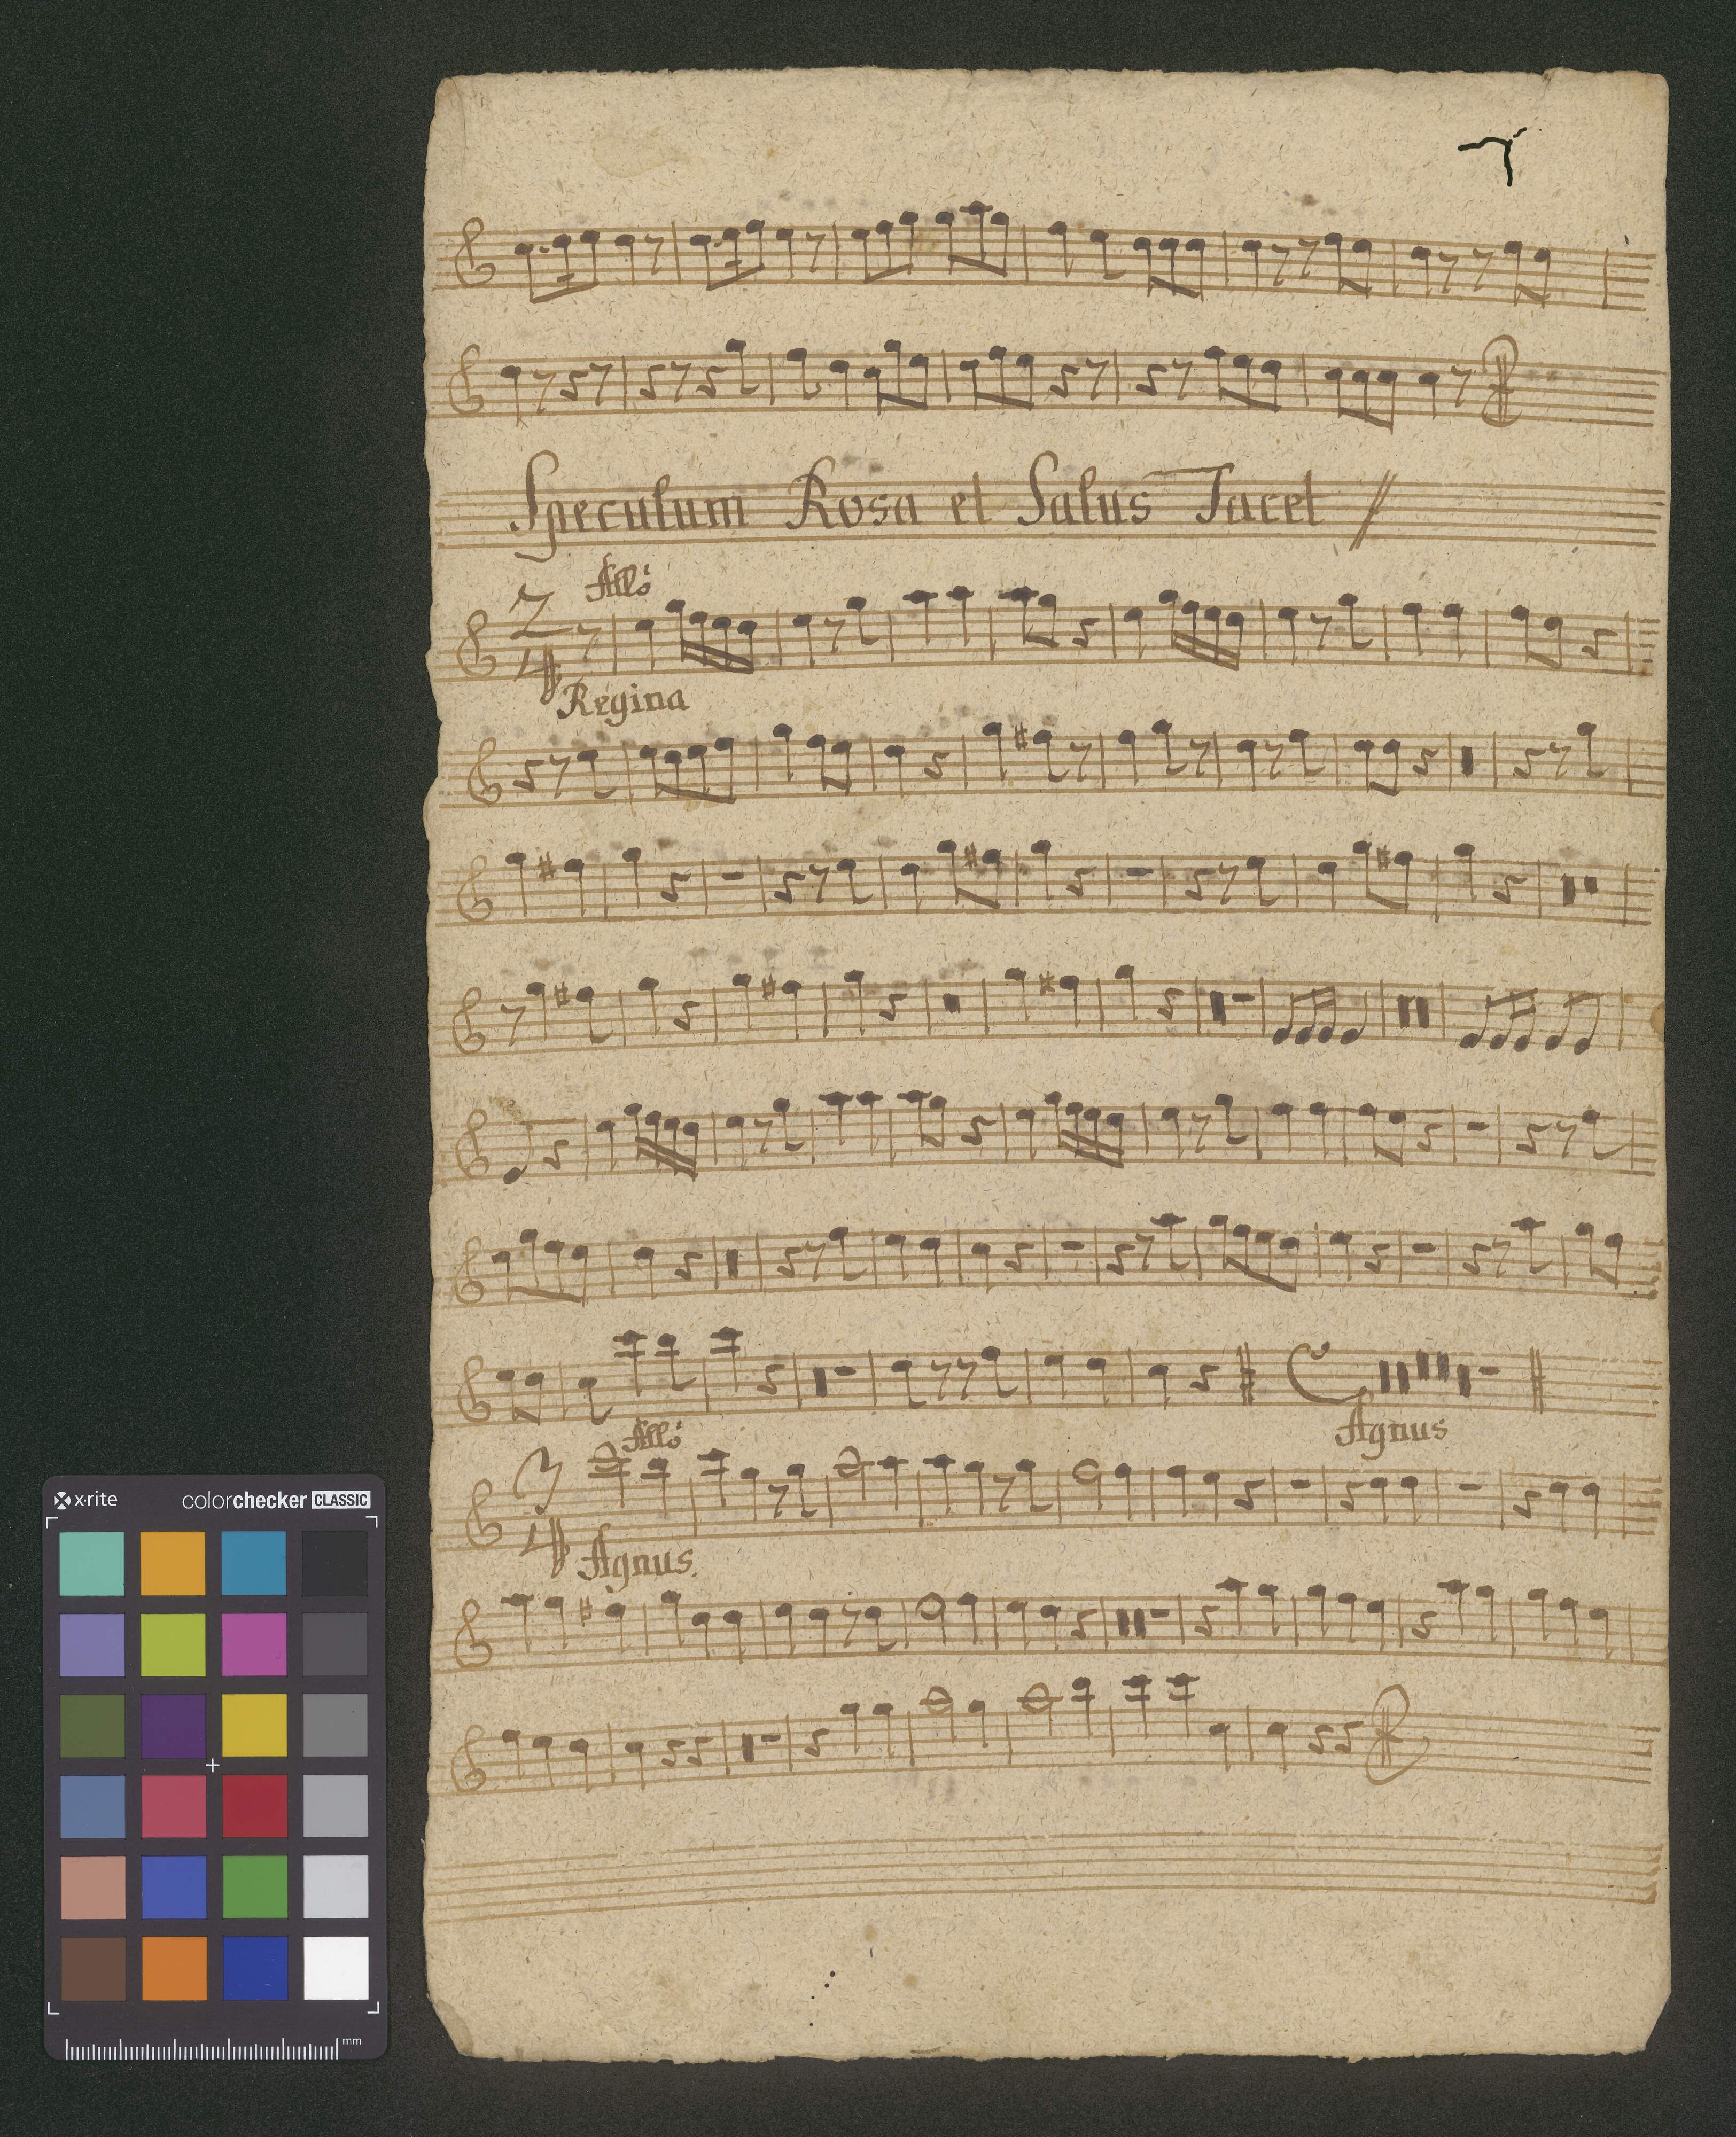 Speculum Rosa et Salus Tacet //
Allo
2
4
Regina
C
Agnus
Allo
3
4
Agnus.
x-rite colorchecker CLASSIC
mm